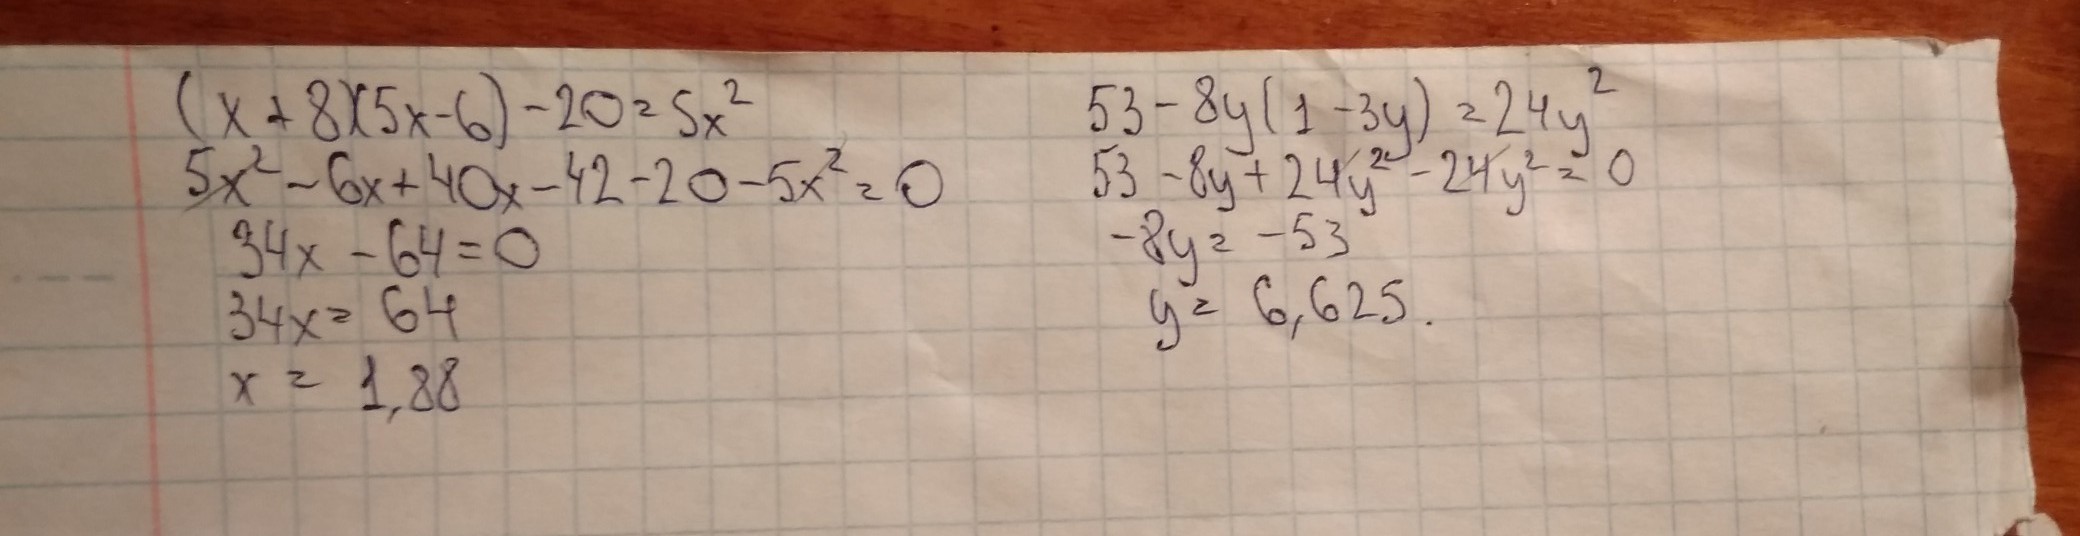 (x+8)(5x-6)-20=5x²
5x²-6x+40x-42-20-5x²=0
34x-64=0
34x=64
x=1,88
53-8y(1-3y)=24y²
53-8y+24y²-24y²=0
-8y=-53
y=6,625.